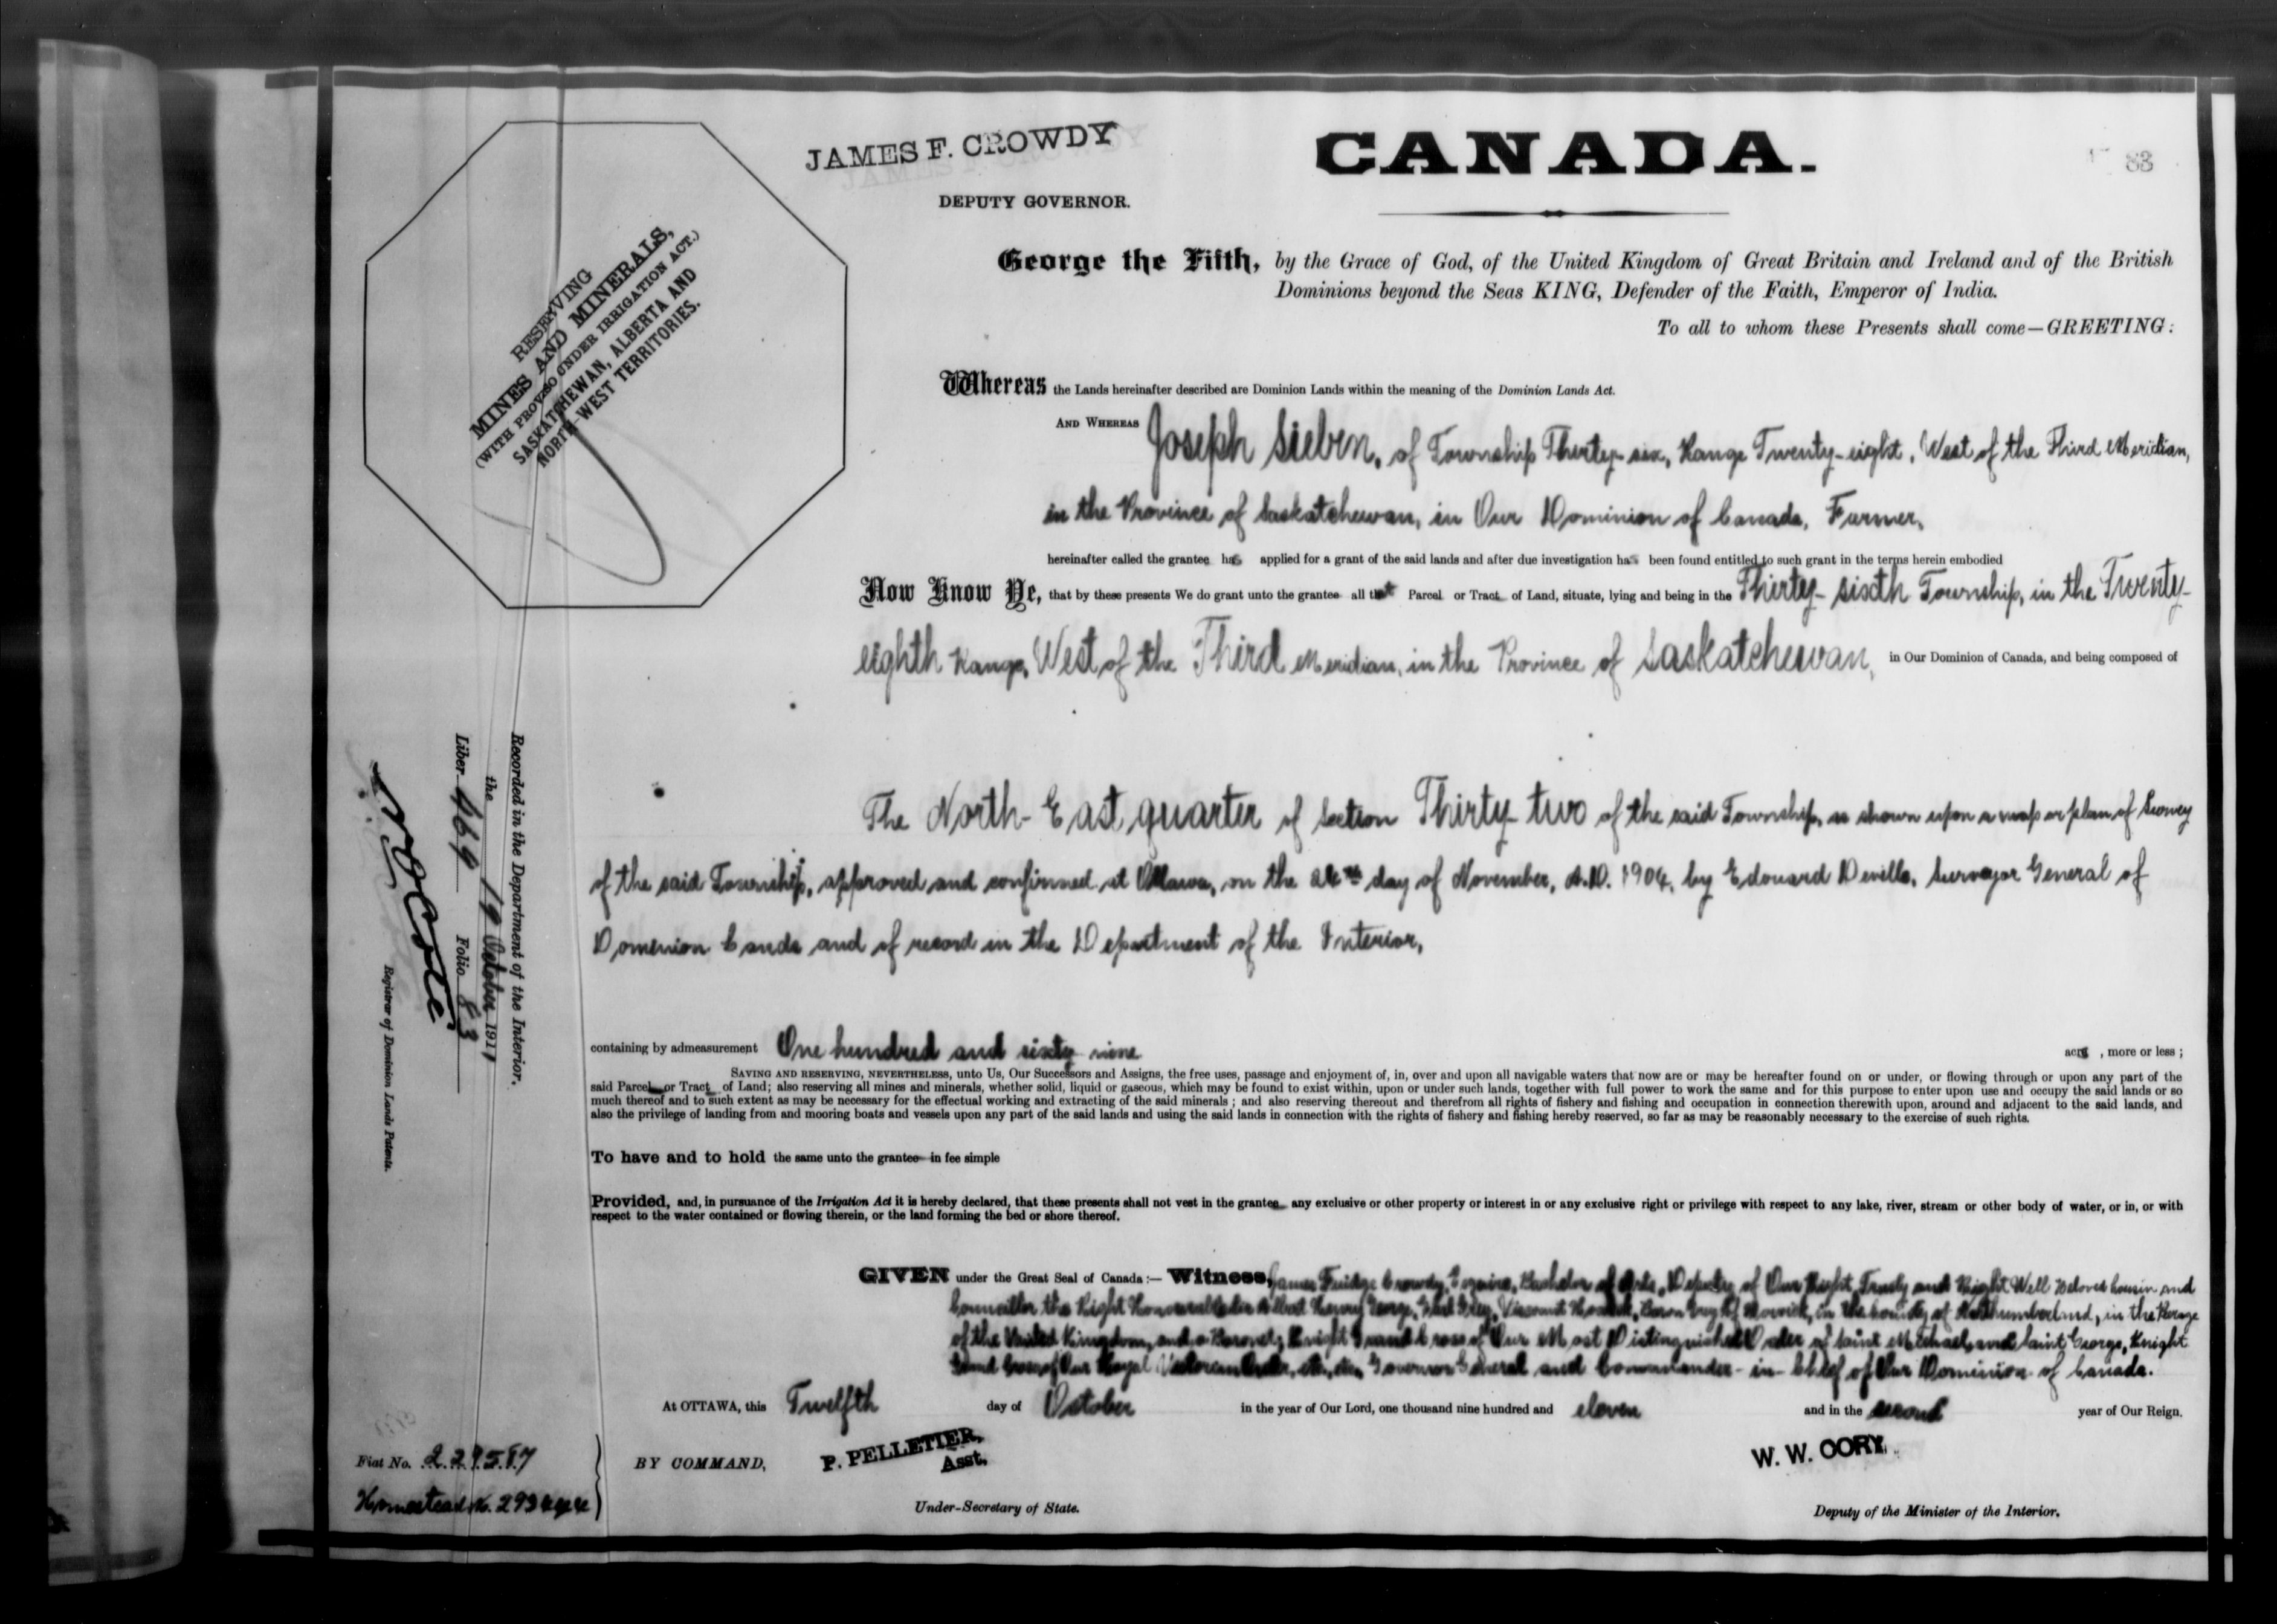 JAMES F. CROWDY
DEPUTY GOVERNOR.
CANADA.
83
RESERVING
MINES AND MINERALS,
(WITH PROVISO UNDER IRRIGATION ACT.)
SASKATCHEWAN, ALBERTA AND
NORTH-WEST TERRITORIES.
George the Fifth, by the Grace of God, of the United Kingdom of Great Britain and Ireland and of the British
Dominions beyond the Seas KING, Defender of the Faith, Emperor of India.
To all to whom these Presents shall come—GREETING:
Whereas the Lands hereinafter described are Dominion Lands within the meaning of the Dominion Lands Act.
AND WHEREAS Joseph Sieben, of Township Thirty-six, Range Twenty-eight, West of the Third Meridian,
in the Province of Saskatchewan, in Our Dominion of Canada, Farmer,
hereinafter called the grantee has applied for a grant of the said lands and after due investigation has been found entitled to such grant in the terms herein embodied
Now Know Ye, that by these presents We do grant unto the grantee all that Parcel or Tract of Land, situate, lying and being in the Thirty-sixth Township, in the Twenty-
eighth Range, West of the Third Meridian, in the Province of Saskatchewan, in Our Dominion of Canada, and being composed of
The North-East quarter of Section Thirty-two of the said Township, as shown upon a map or plan of Survey
of the said Township, approved and confirmed at Ottawa, on the day of November, A.D. 1904, by Edouard Deville, Surveyor General of
Dominion Lands and of record in the Department of the Interior,
containing by admeasurement One hundred and sixty nine acres, more or less;
SAVING AND RESERVING, NEVERTHELESS, unto Us, Our Successors and Assigns, the free uses, passage and enjoyment of, in, over and upon all navigable waters that now are or may be hereafter found on or under, or flowing through or upon any part of the
said Parcel or Tract of Land; also reserving all mines and minerals, whether solid, liquid or gaseous, which may be found to exist within, upon or under such lands, together with full power to work the same and for this purpose to enter upon use and occupy the said lands or so
much thereof and to such extent as may be necessary for the effectual working and extracting of the said minerals; and also reserving thereout and therefrom all rights of fishery and fishing and occupation in connection therewith upon, around and adjacent to the said lands, and
also the privilege of landing from and mooring boats and vessels upon any part of the said lands and using the said lands in connection with the rights of fishery and fishing hereby reserved, so far as may be reasonably necessary to the exercise of such rights.
To have and to hold the same unto the grantee in fee simple
Provided, and, in pursuance of the Irrigation Act it is hereby declared, that these presents shall not vest in the grantee any exclusive or other property or interest in or any exclusive right or privilege with respect to any lake, river, stream or other body of water, or in, or with
respect to the water contained or flowing therein, or the land forming the bed or shore thereof.
GIVEN under the Great Seal of Canada:— Witness, James Fuidge Crowdy, Esquire, Bachelor of Arts, Deputy of Our Right Trusty and Right Well Beloved Cousin and
Councillor the Right Honourable Sir Albert Henry George, Earl Grey, Viscount Howick, Baron Grey of Howick, in the County of Northumberland, in the Peerage
of the United Kingdom, and a Baronet; Knight Grand Cross of Our Most Distinguished Order of Saint Michael and Saint George, Knight
Grand Cross of Our Royal Victorian Order, etc., etc., Governor General and Commander-in-Chief of Our Dominion of Canada.
At OTTAWA, this Twelfth day of October in the year of Our Lord, one thousand nine hundred and eleven and in the second year of Our Reign.
BY COMMAND,
P. PELLETIER,
Asst.
Under-Secretary of State.
W. W. CORY,
Deputy of the Minister of the Interior.
Recorded in the Department of the Interior.
the 19 October 1911
Liber 469 Folio 83
Registrar of Dominion Lands Patents.
Fiat No. 229587
Homestead No.